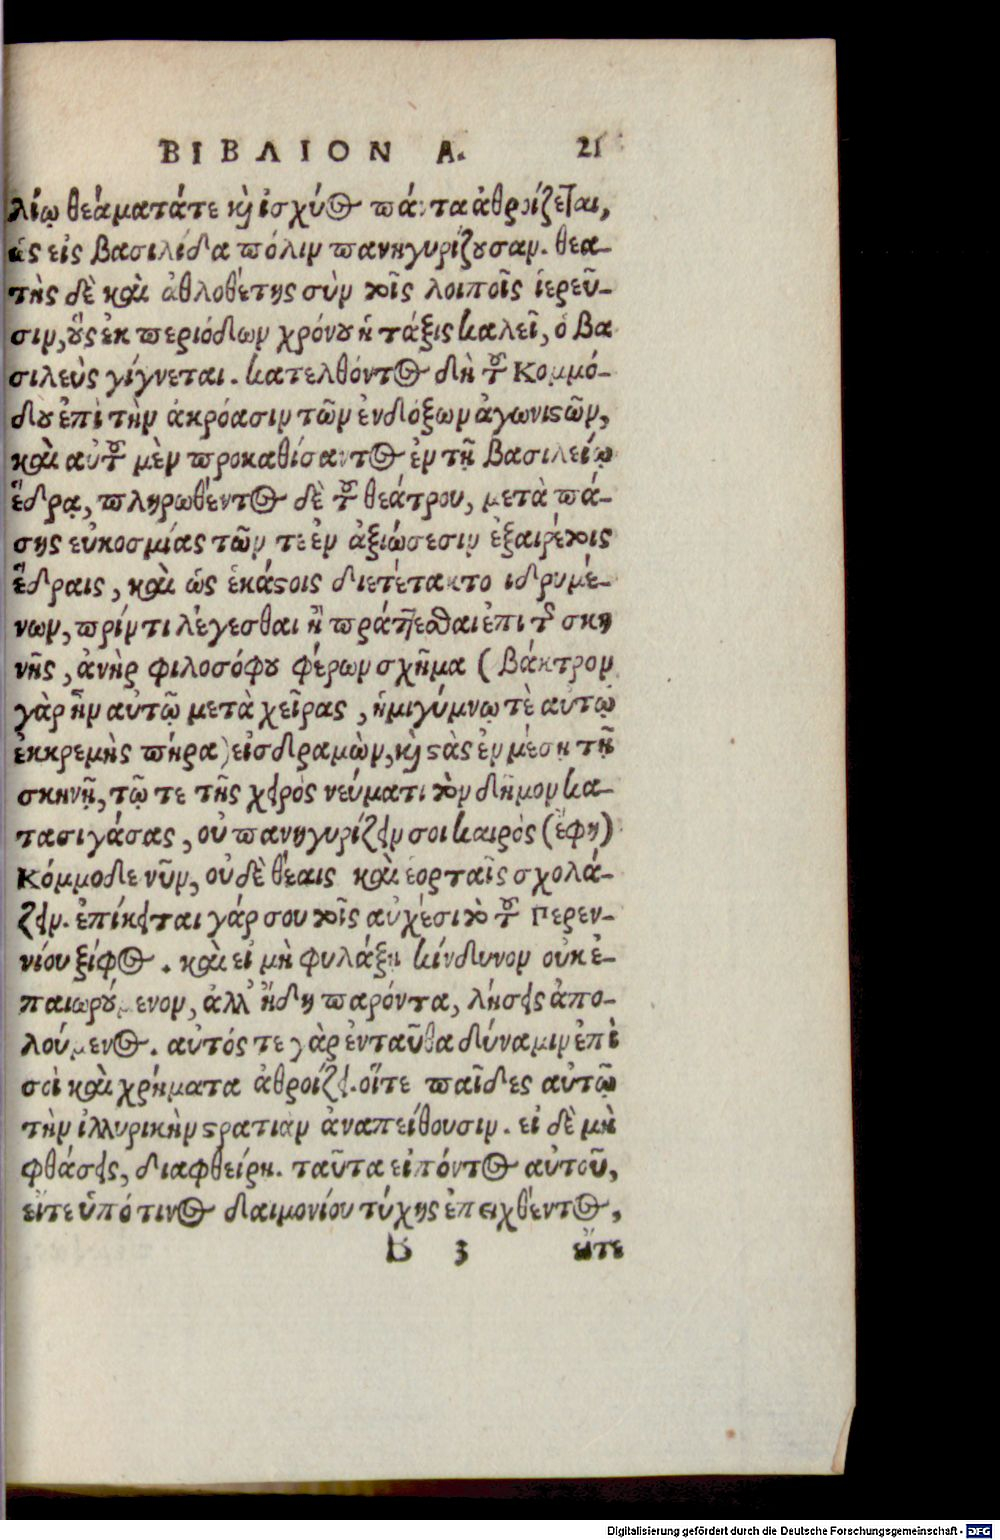 ΒΙΒΛΙΟΝ Α. 21
λίῳ θεάματά τε κὶ ἰσχύος πάντα ἀθροίζεται,
ὡς εἰς βασιλίδα πόλιν πανηγυρίζουσαν. θεα-
τὴς δὲ καὶ ἀθλοθέτης σὺν τοῖς λοιποῖς ἱερεῦ-
σιν, οὓς ἐκ περιόδων χρόνου ἡ τάξις καλεῖ, ὁ βα
σιλεὺς γίγνεται. κατελθόντος δὴ τοῦ Κομμό-
δου ἐπὶ τὴν ἀκρόασιν τῶν ἐνδόξων ἀγωνιστῶν,
καὶ αὐτοῦ μὲν προκαθίσαντος ἐν τῇ βασιλείῳ
ἕδρᾳ, πληρωθέντος δὲ τοῦ θεάτρου, μετὰ πά-
σης εὐκοσμίας τῶν τε ἐν ἀξιώσεσιν ἐξαιρέτοις
ἕδραις, καὶ ὡς ἑκάστοις διετέτακτο ιδρυμέ-
νων, πρίν τι λέγεσθαι ἢ πράττεσθαι ἐπι τῆς σκη
νῆς, ἀνὴρ φιλοσόφου φέρων σχῆμα (βάκτρον
γὰρ ἦν αὐτῷ μετὰ χεῖρας, ἡμιγύμνῳ τὲ αὐτῷ
ἐκκρεμὴς πήρα) εἰσδραμὼν, κὶ στὰς ἐν μέσῃ τῇ
σκηνῇ, τῷ τε τῆς χειρὸς νεύματι τὸν δῆμον κα-
τασιγάσας, οὐ πανηγυρίζειν σοι καιρὸς (ἔφη)
Κόμμοδε νῦν, οὐδὲ θέαις καὶ ἑορταῖς σχολά-
ζειν. ἐπίκειται γάρ σου τοῖς αὐχέσι τὸ τοῦ Περεν-
νίου ξίφος. καὶ εἰ μὴ φυλάξῃ κίνδυνον οὐκ ἐ-
παιωρούμενον, ἀλλ' ἤδη παρόντα, λήσεις ἀπο-
λούμενος. αὐτός τε γὰρ ἐνταῦθα δύναμιν ἐπὶ
σοὶ καὶ χρήματα ἀθροίζει. οἵτε παῖδες αὐτῷ
τὴν ἰλλυρικὴν στρατιὰν ἀναπείθουσιν. εἰ δὲ μὴ
φθάσεις, διαφθείρῃ. ταῦτα εἰπόντος αὐτοῦ,
εἴτε ὑπό τινος δαιμονίου τύχης ἐπειχθέντος,
B 3 εἴτε
Digitalisierung gefördert durch die Deutsche Forschungsgemeinschaft - DFG